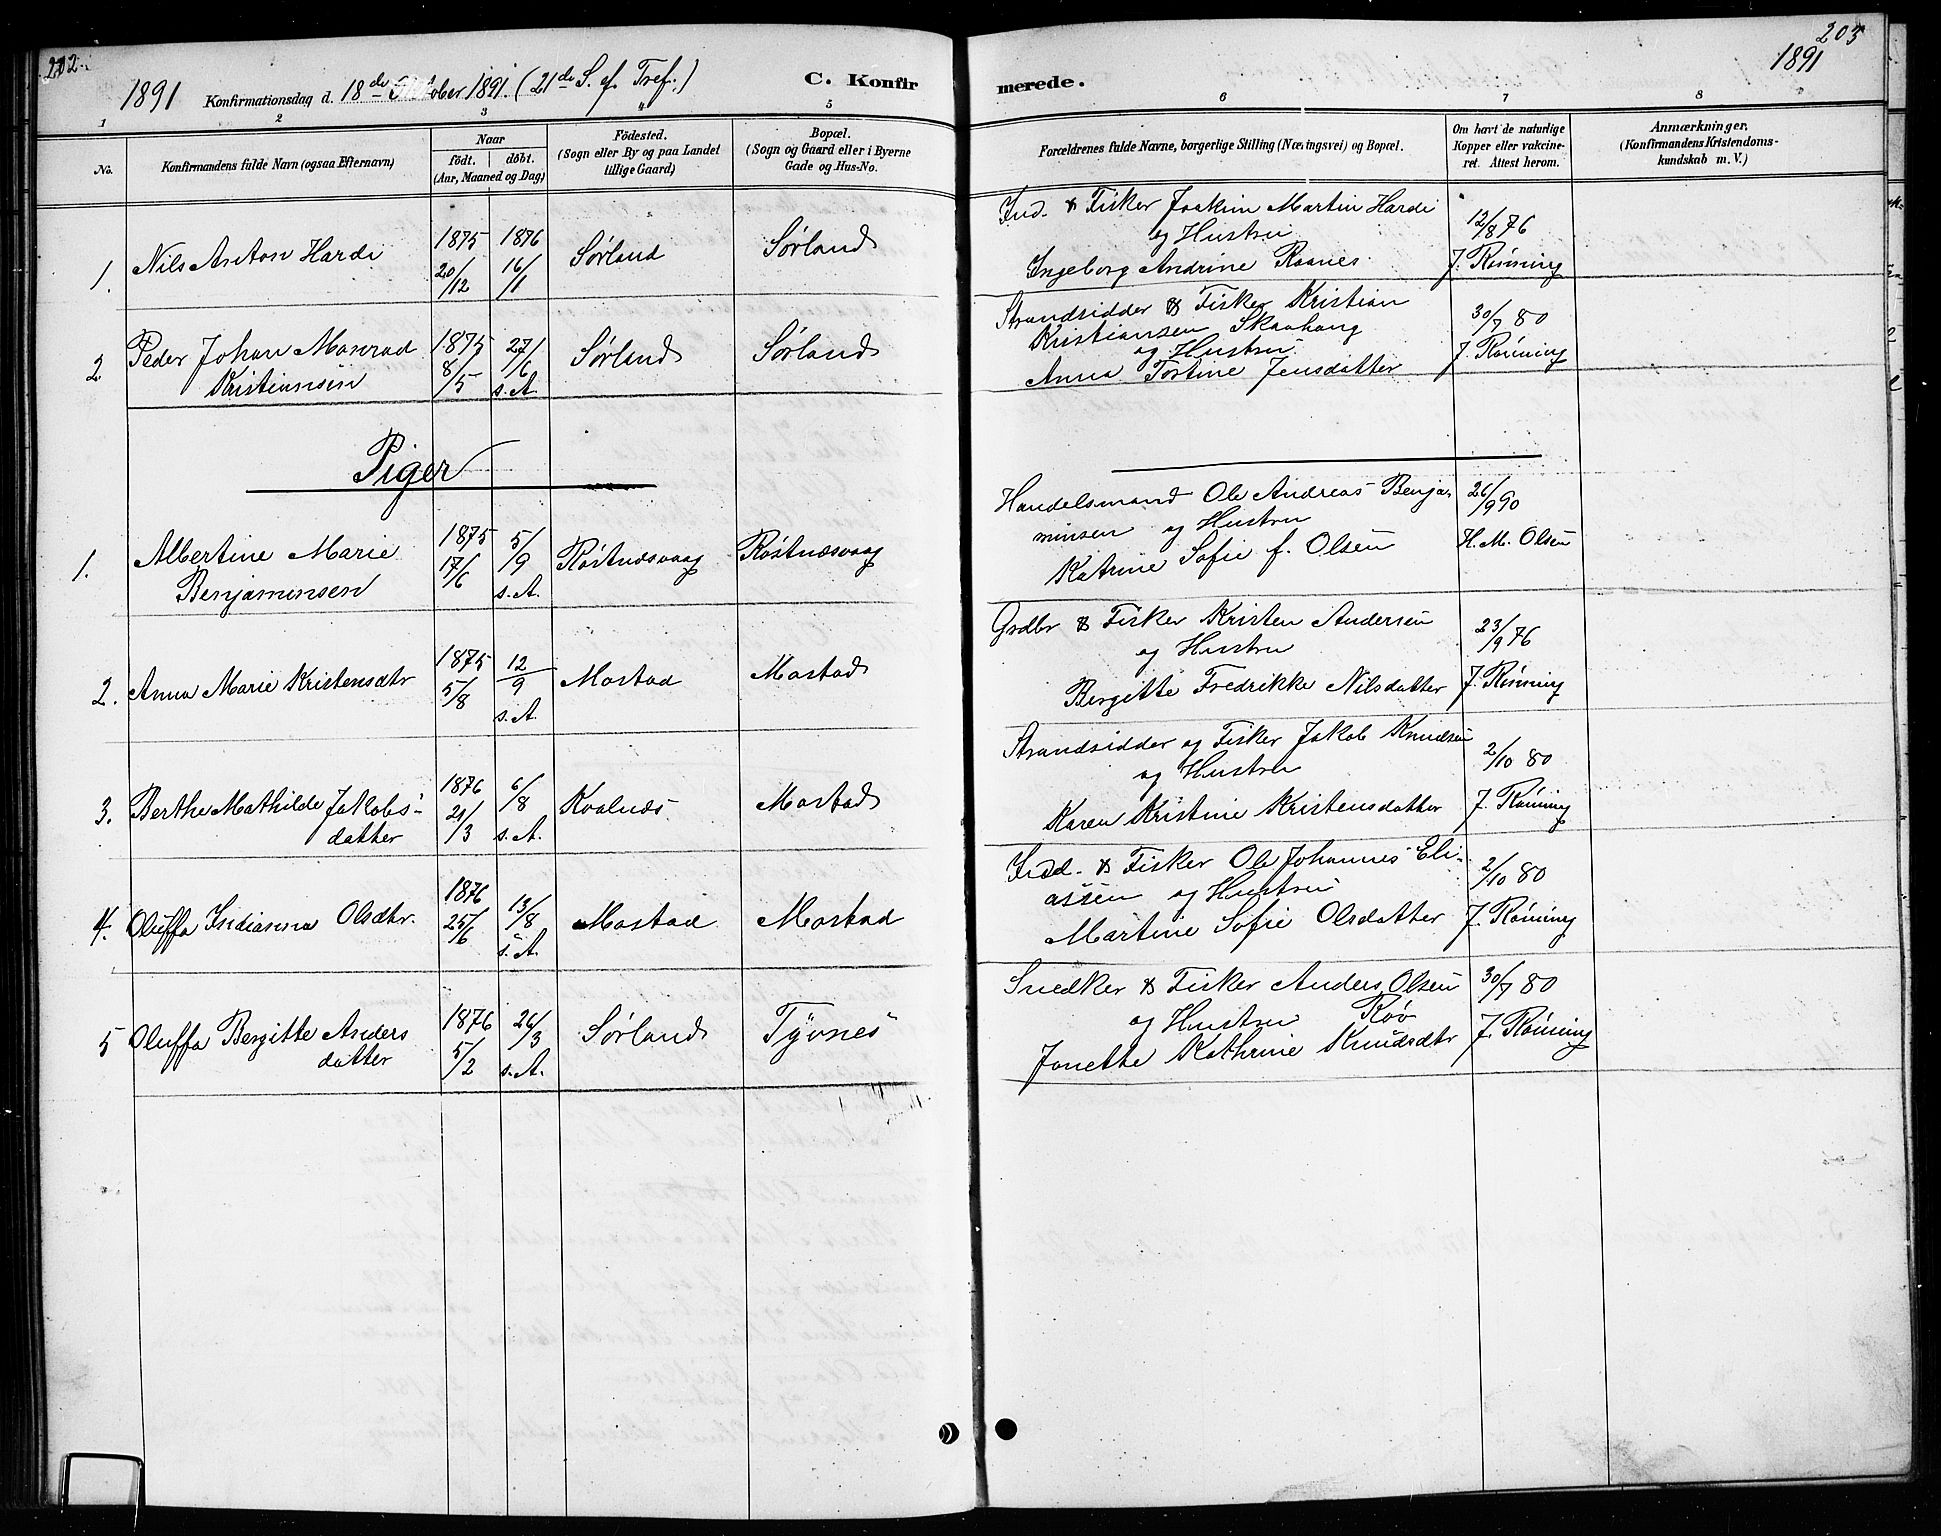 202.
1891 Konfirmationsdag d. 18de Oktober 1891. (21de S. ef. Tref.)
C. Konfir
1 2 3 4 5
No.
Konfirmandens fulde Navn (ogsaa Efternavn)
Naar
födt. döbt.
(Aar, Maaned og Dag)
Födested.
(Sogn eller By og paa Landet
tillige Gaard)
Bopæl.
(Sogn og Gaard eller i Byerne
Gade og Hus-No.
1. Nils Anton Hardi 1875 20/12 1876 16/1 Sørland Sørland
2 Peder Johan Monrad
Kristiansen 1875 8/5 27/6 s. A. Sørland Sørland
Piger
1. Albertine Marie
Benjaminsen 1875 17/6 5/9 s. A. Røstnæsvaag Røstnæsvaag
2. Anna Marie Kristensdtr 1875 5/8 12/9 s. A. Mostad Mostad
3. Berthe Mathilde Jakobs-
datter 1876 21/3 6/8 s. A. Kvalnæs Mostad
4. Oluffa Indianna Olsdtr. 1876 25/6 13/8 s. A. Mostad Mostad
5 Oluffa Bergitte Anders
datter 1876 5/2 26/3 s. A. Sørland Tyvnes
203
1891
merede.
6 7 8
Forældrenes fulde Navne, borgerlige Stilling (Næringsvei) og Bopæl.
Om havt de naturlige
Kopper eller vakcine-
ret. Attest herom.
Anmærkninger.
(Konfirmandens Kristendoms-
kundskab m. V.)
Ind. & Fisker Joakim Martin Hardi
og Hustru
Ingeborg Andrine Raanes 12/8 76
J. Rønning
Strandsidder & Fisker Kristian
Kristiansen Skaahang
og Hustru
Anna Tortine Jensdatter 30/7 80
J. Rønning
Handelsmand Ole Andreas Benja-
minsen og Hustru
Katrine Sofie f. Olsen 26/9 90
H. M. Olsen
Grdbr & Fisker Kristen Andersen
og Hustru
Bergitte Fredrikke Nilsdatter 23/9 76
J. Rønning
Strandsidder og Fisker Jakob Knudsen
og Hustru
Karen Kristine Kristensdatter 2/10 80
J. Rønning
Ind. & Fisker Ole Johannes Eli-
assen og Hustru
Martine Sofie Olsdatter 2/10 80
J. Rønning
Snedker & Fisker Anders Olsen
og Hustru Røv
Jonette Kathrine Knudsdtr 30/7 80
J. Rønning